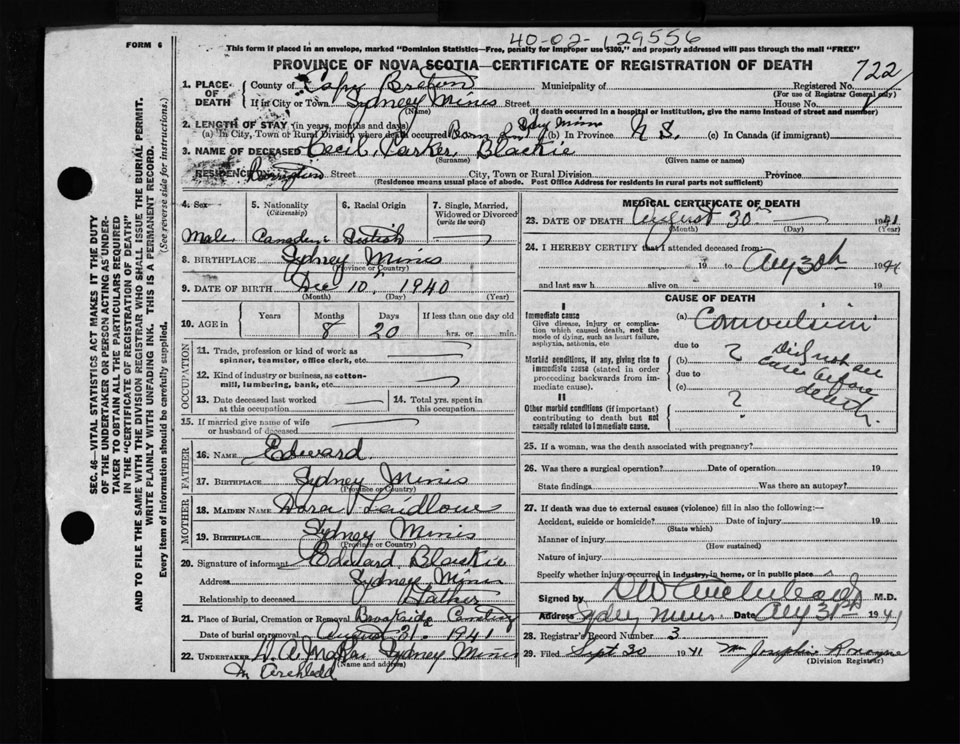 40-02-129556
FORM 6
This form if placed in an envelope, marked "Dominion Statistics—Free, penalty for improper use $300," and properly addressed will pass through the mail "FREE"
PROVINCE OF NOVA SCOTIA—CERTIFICATE OF REGISTRATION OF DEATH
722
1. PLACE OF DEATH County of Cape Breton Municipality of Registered No.
(For use of Registrar General only)
If in City or Town Sydney Mines Street House No.
(Name) (If death occurred in a hospital or institution, give the name instead of street and number)
2. LENGTH OF STAY (in years, months and days)
(a) In City, Town or Rural Division where death occurred Born in Syd Mines (b) In Province N S. (c) In Canada (if immigrant)
3. NAME OF DECEASED Cecil Parker Blackie
(Surname) (Given name or names)
RESIDENCE Street City, Town or Rural Division Province
(Residence means usual place of abode. Post Office Address for residents in rural parts not sufficient)
4. Sex
Male
5. Nationality
(Citizenship)
Canadian
6. Racial Origin
7. Single, Married, Widowed or Divorced
(write the word)
8. BIRTHPLACE Sydney Mines
(Province or Country)
9. DATE OF BIRTH Dec 10" 1940
(Month) (Day) (Year)
10. AGE in Years Months Days If less than one day old
8 20 hrs. or min.
OCCUPATION
11. Trade, profession or kind of work as spinner, teamster, office clerk, etc.
12. Kind of industry or business, as cotton-mill, lumbering, bank, etc.
13. Date deceased last worked at this occupation
14. Total yrs. spent in this occupation
15. If married give name of wife or husband of deceased
FATHER
16. NAME Edward
17. BIRTHPLACE Sydney Mines
(Province or Country)
MOTHER
18. MAIDEN NAME Dora
19. BIRTHPLACE Sydney Mines
(Province or Country)
20. Signature of informant Edward Blackie
Address Sydney Mines
Relationship to deceased Father
21. Place of Burial, Cremation or Removal Brookside Cemetery
Date of burial or removal August 31. 1941
22. UNDERTAKER Sydney Mines
(Name and address)
MEDICAL CERTIFICATE OF DEATH
23. DATE OF DEATH August 30th 1941
(Month) (Day) (Year)
24. I HEREBY CERTIFY that I attended deceased from:
19 to Aug 30th 1941
and last saw h alive on 19
CAUSE OF DEATH
I
Immediate cause
Give disease, injury or complication which caused death, not the mode of dying, such as heart failure, asphyxia, asthenia, etc.
(a) Convulsion
due to
Morbid conditions, if any, giving rise to immediate cause (stated in order proceeding backwards from immediate cause).
(b) ?
due to
(c)
Did not see case before death.
II
Other morbid conditions (if important) contributing to death but not causally related to immediate cause.
?
25. If a woman, was the death associated with pregnancy?
26. Was there a surgical operation? Date of operation 19
State findings Was there an autopsy?
27. If death was due to external causes (violence) fill in also the following:—
Accident, suicide or homicide? Date of injury 19
(State which)
Manner of injury
(How sustained)
Nature of injury
Specify whether injury occurred in industry, in home, or in public place
Signed by M.D.
Address Sydney Mines Date Aug 31st 1941
28. Registrar's Record Number 3
29. Filed Sept 30 1941 Josephine
(Division Registrar)
SEC. 46—VITAL STATISTICS ACT MAKES IT THE DUTY
OF THE UNDERTAKER OR PERSON ACTING AS UNDER-
TAKER TO OBTAIN ALL THE PARTICULARS REQUIRED
IN THE "CERTIFICATE OF REGISTRATION OF DEATH"
AND TO FILE THE SAME WITH THE DIVISION REGISTRAR WHO SHALL ISSUE THE BURIAL PERMIT.
WRITE PLAINLY WITH UNFADING INK. THIS IS A PERMANENT RECORD.
Every item of information should be carefully supplied. (See reverse side for instructions.)